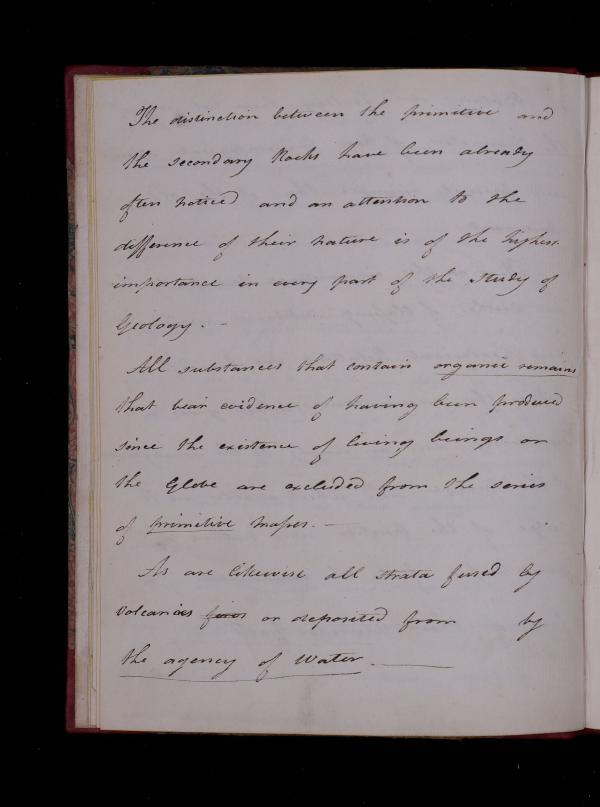 The distinction between the primitive and
the secondary Rocks have been already
often noticed and an attention to the
difference of their nature is of the highest
importance in every part of the study of
Geology. -
All substances that contain organic remains
that bear evidence of having been produced
since the existence of living beings on
the Globe are excluded from the series
of primitive masses. -
As are likewise all strata fused by
Volcanoes fires or deposited from by
the agency of Water.